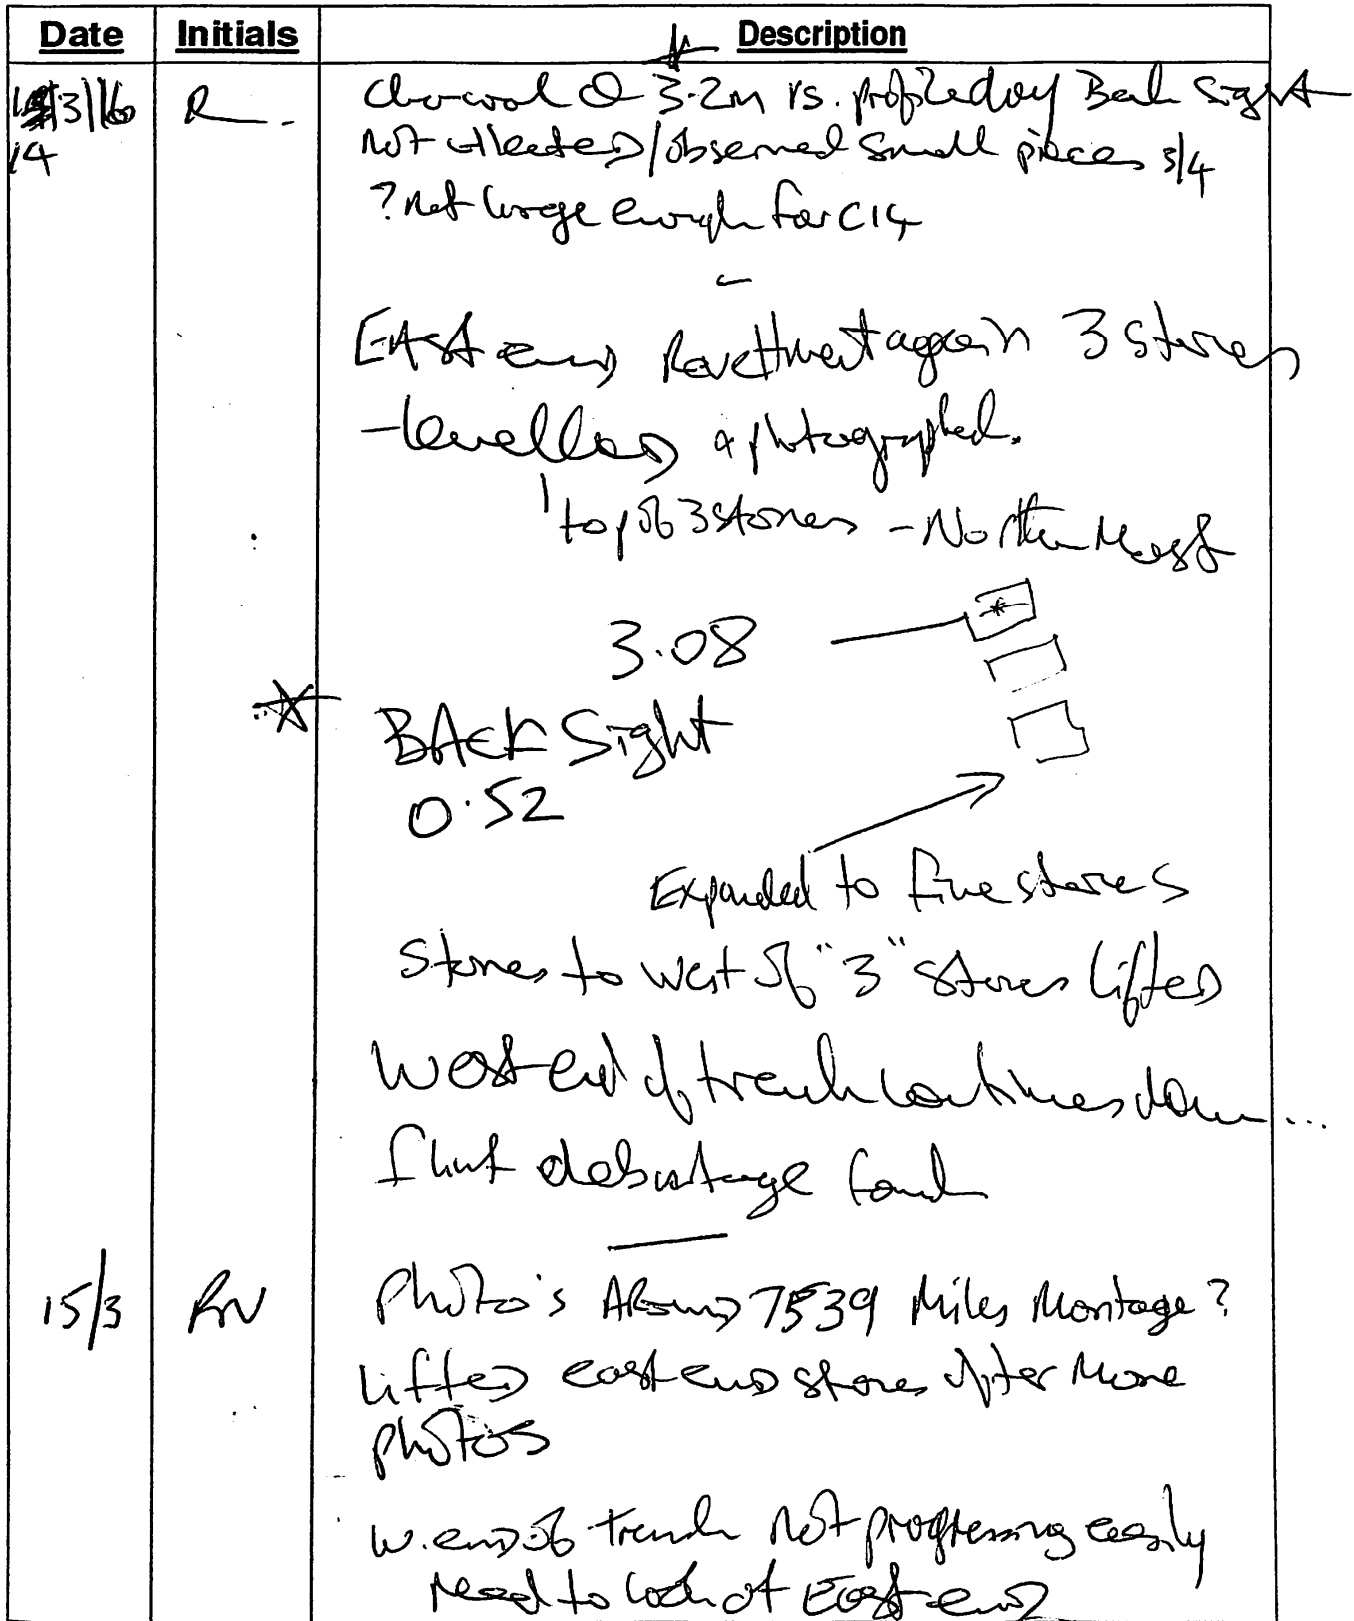 Date Initials Description
3/16 R. Charcoal @ 3.2m vs. Back Sight
14 not collected/observed small pieces 3/4
? not large enough for C14
East end Revettment again 3 stones
- levelled & photographed.
top of 3 stones - Northern Most
3.08
BACK Sight
0.52
Expanded to five stones
Stones to west of "3" stones lifted
West end of trench continues down...
flint debutage found
15/3 RN Photo's Around 7539 Miles Montage?
Lifted east end stones after more
photos
W. end of trench not progressing easily
need to look at East end